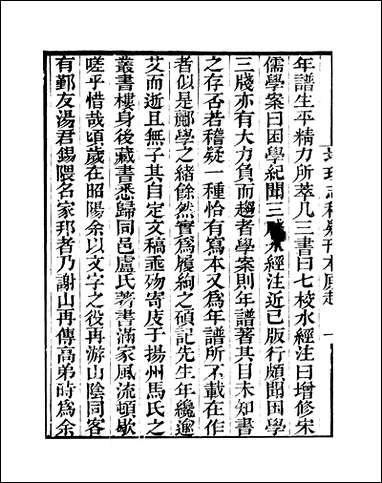 年譜生平精力所萃几三書曰七校水經注曰增修宋
儒學案曰困學紀聞三 水經注近已版行頗聞困學
三牋亦有大力負而趨者學案則年譜著其目未知書
之存否若稽疑一種恰有寫本又爲年譜所不載在作
者似是酈學之緒餘然實爲履絢之碩記先生年纔逾
艾而逝且無子其自定文稿垂歿寄庋于揚州馬氏之
叢書樓身後藏書悉歸同邑盧氏著書滿家風流頓歇
嗟乎惜哉頃歲在昭陽余以文字之役再游山陰同客
有鄞友湯君錫隈名家邦者乃謝山再傳高弟時爲余
志稽疑刊本原起 一